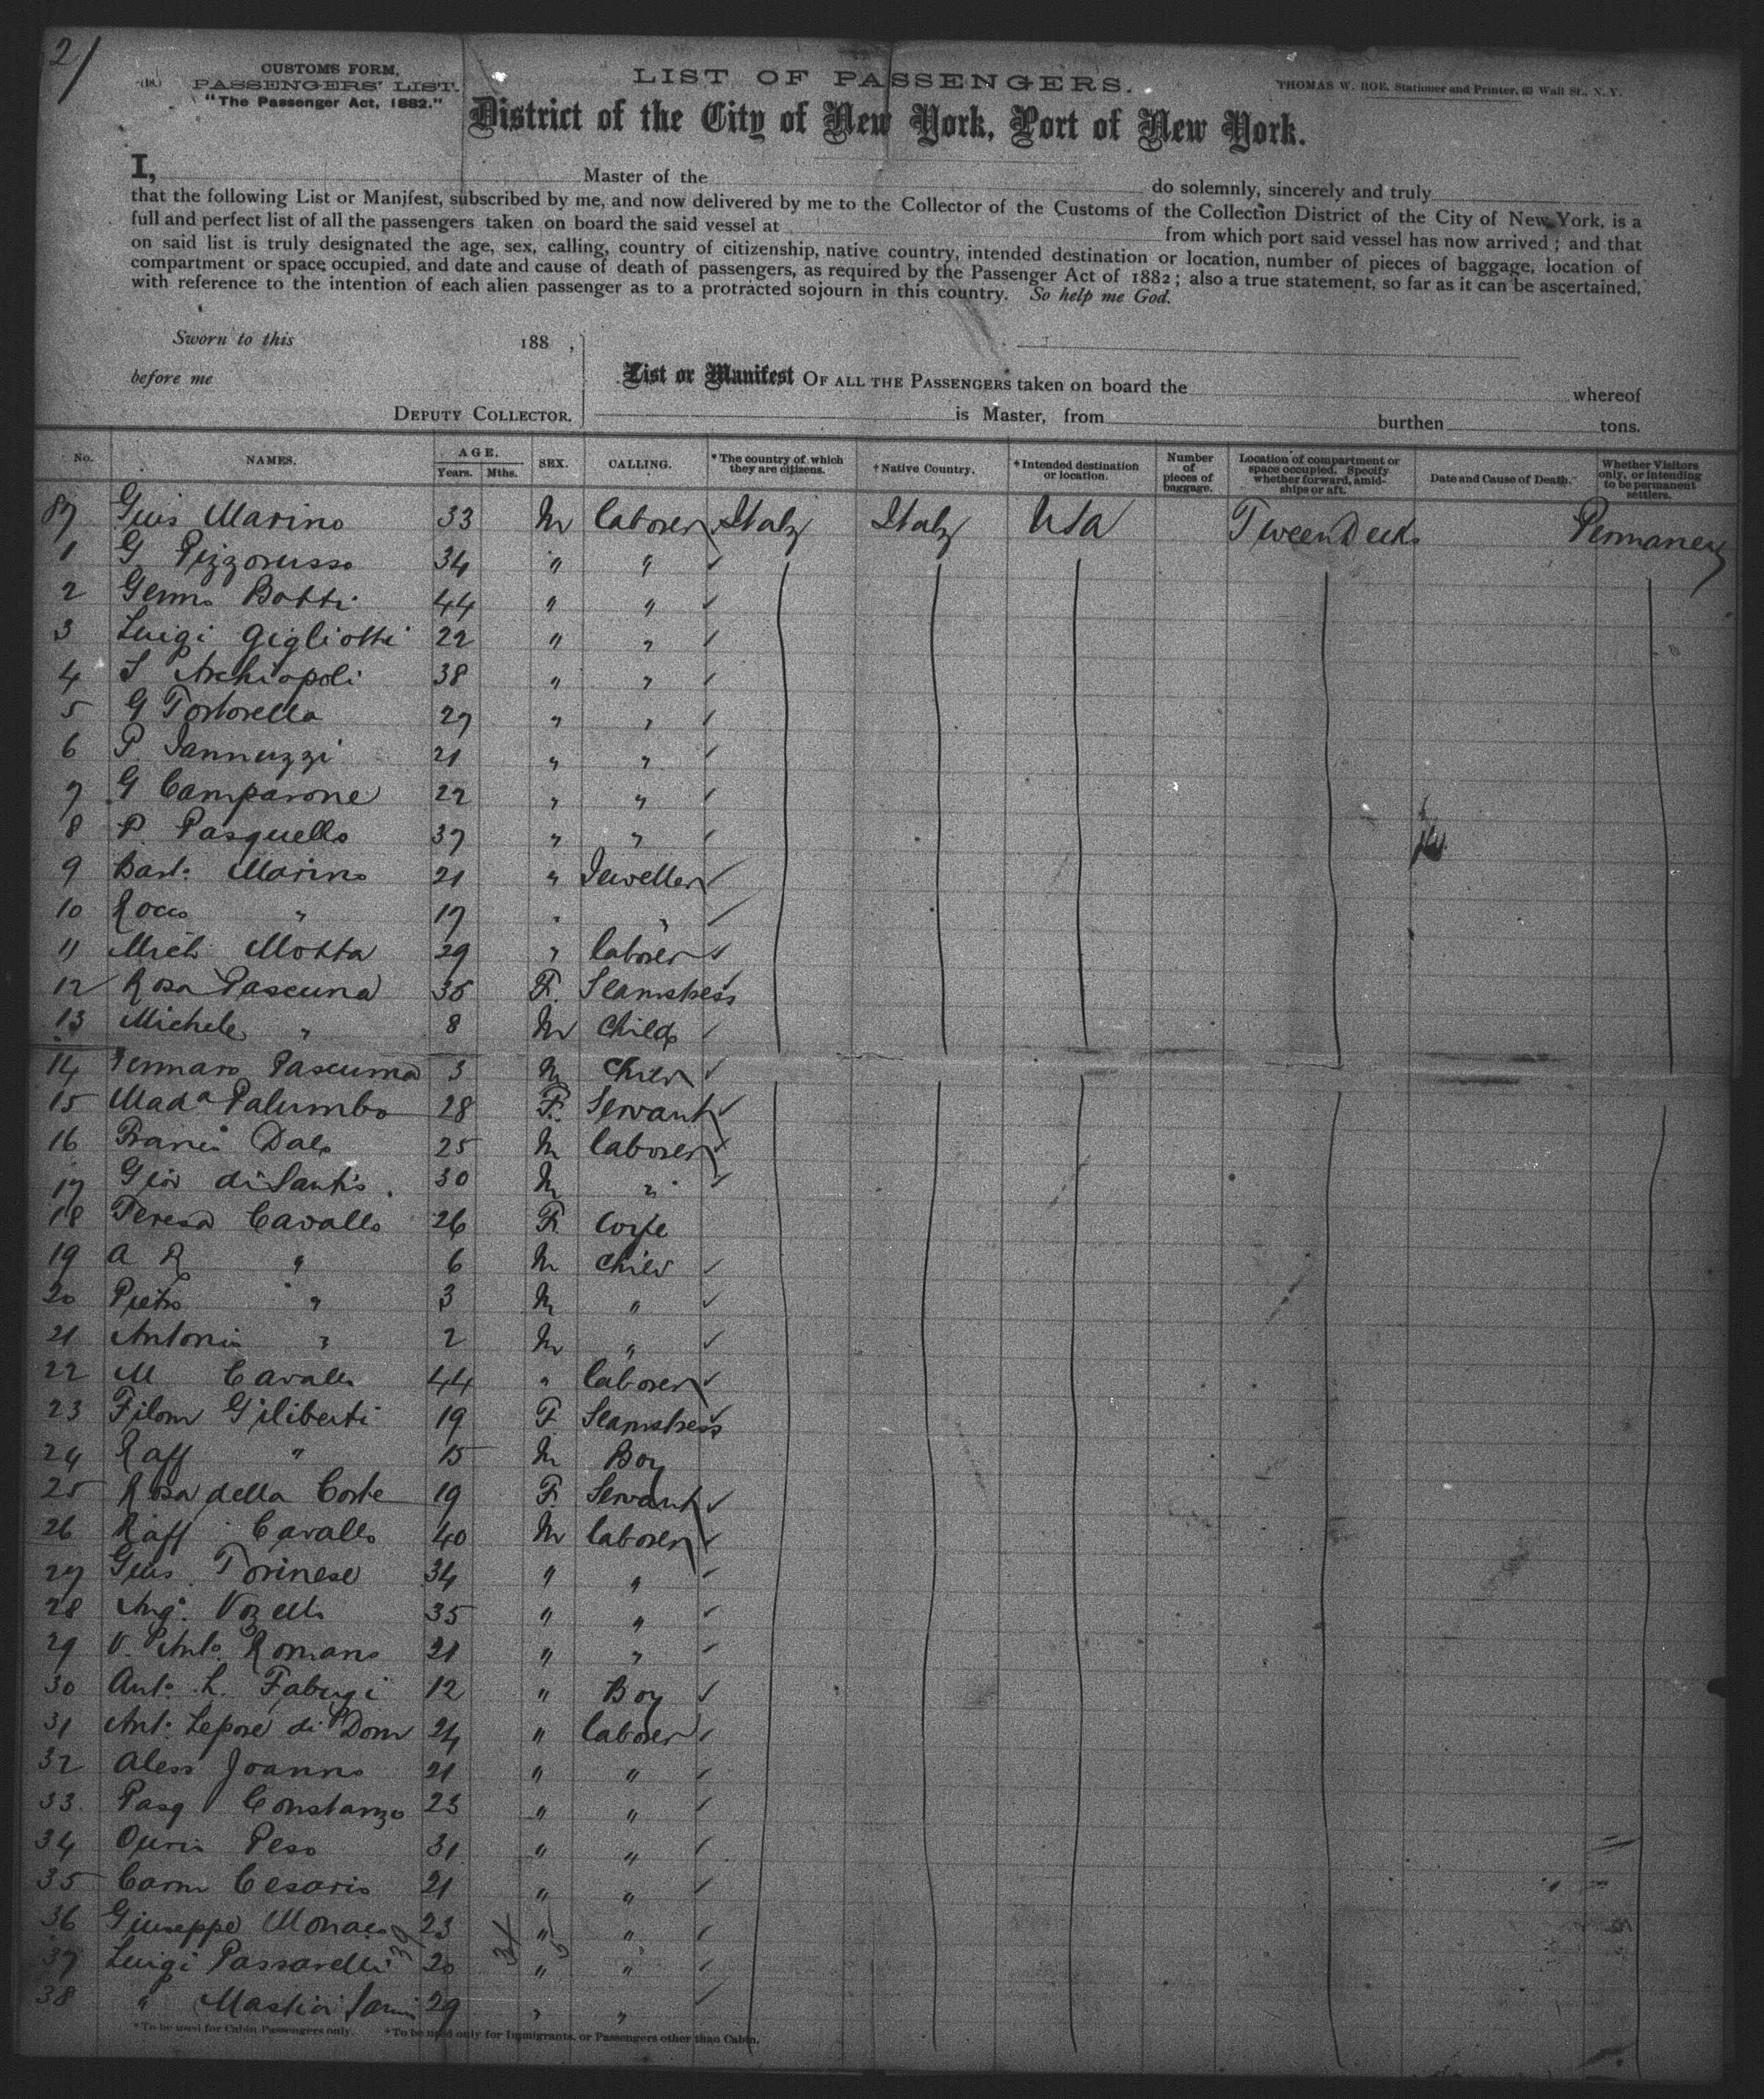 2/
CUSTOMS FORM.
PASSENGERS' LIST.
"The Passenger Act, 1882."
LIST OF PASSENGERS.
THOMAS W. ROE, Stationer and Printer, 63 Wall St., N.Y.
District of the City of New York, Port of New York.
I, Master of the do solemnly, sincerely and truly
that the following List or Manifest, subscribed by me, and now delivered by me to the Collector of the Customs of the Collection District of the City of New York, is a
full and perfect list of all the passengers taken on board the said vessel at from which port said vessel has now arrived; and that
on said list is truly designated the age, sex, calling, country of citizenship, native country, intended destination or location, number of pieces of baggage, location of
compartment or space occupied, and date and cause of death of passengers, as required by the Passenger Act of 1882; also a true statement, so far as it can be ascertained,
with reference to the intention of each alien passenger as to a protracted sojourn in this country. So help me God.
Sworn to this 188 ,
before me
List or Manifest OF ALL THE PASSENGERS taken on board the whereof
DEPUTY COLLECTOR. is Master, from burthen tons.
No. NAMES. AGE. Years. Mths. SEX. CALLING. *The country of which they are citizens. †Native Country. *Intended destination or location. Number of pieces of baggage. Location of compartment or space occupied. Specify whether forward, amidships or aft. Date and Cause of Death. Whether Visitors only, or intending to be permanent settlers.
87 Gius Marino 33 M laborer Italy Italy USA Tween Decks Permanent
1 G Pizzorusso 34 " "
2 Genno Botti 44 " "
3 Luigi Gigliotti 22 " "
4 S Archiopoli 38 " "
5 G Tortorella 27 " "
6 P. Iannuzzi 21 " "
7 G Camparone 22 " "
8 P. Pasquello 37 " "
9 Barto Marino 21 " Jeweller
10 Rocco " 17 " "
11 Mich Motta 29 " laborer
12 Rosa Pascuna 35 F. Seamstress
13 Michele " 8 M Child
14 Gennaro Pascuma 3 M Child
15 Mada Palumbo 28 F. Servant
16 Franco Dalo 25 M laborer
17 Giov di Santis. 30 M "
18 Teresa Cavallo 26 F. Wife
19 A R " 6 M Child
20 Pietro " 3 M "
21 Antonio " 2 M "
22 M Cavallo 44 " laborer
23 Filom Giliberti 19 F Seamstress
24 Raff " 15 M Boy
25 Rosa della Corte 19 F. Servant
26 Raff Cavallo 40 M laborer
27 Gius Torinese 34 " "
28 Ang. Vozelli 35 " "
29 V. Anto. Romano 21 " "
30 Anto. L. Fabugi 12 " Boy
31 Ant. Lepore di Dom 24 " laborer
32 Aless Joanno 21 " "
33. Pasq Constanzo 23 " "
34 Peso 31 " "
35 Carm Cesario 21 " "
36 Giuseppe Monaco 23 " "
37 Luigi Passarelli 20 " "
38 " 29 " "
*To be used for Cabin Passengers only. †To be used only for Immigrants, or Passengers other than Cabin.